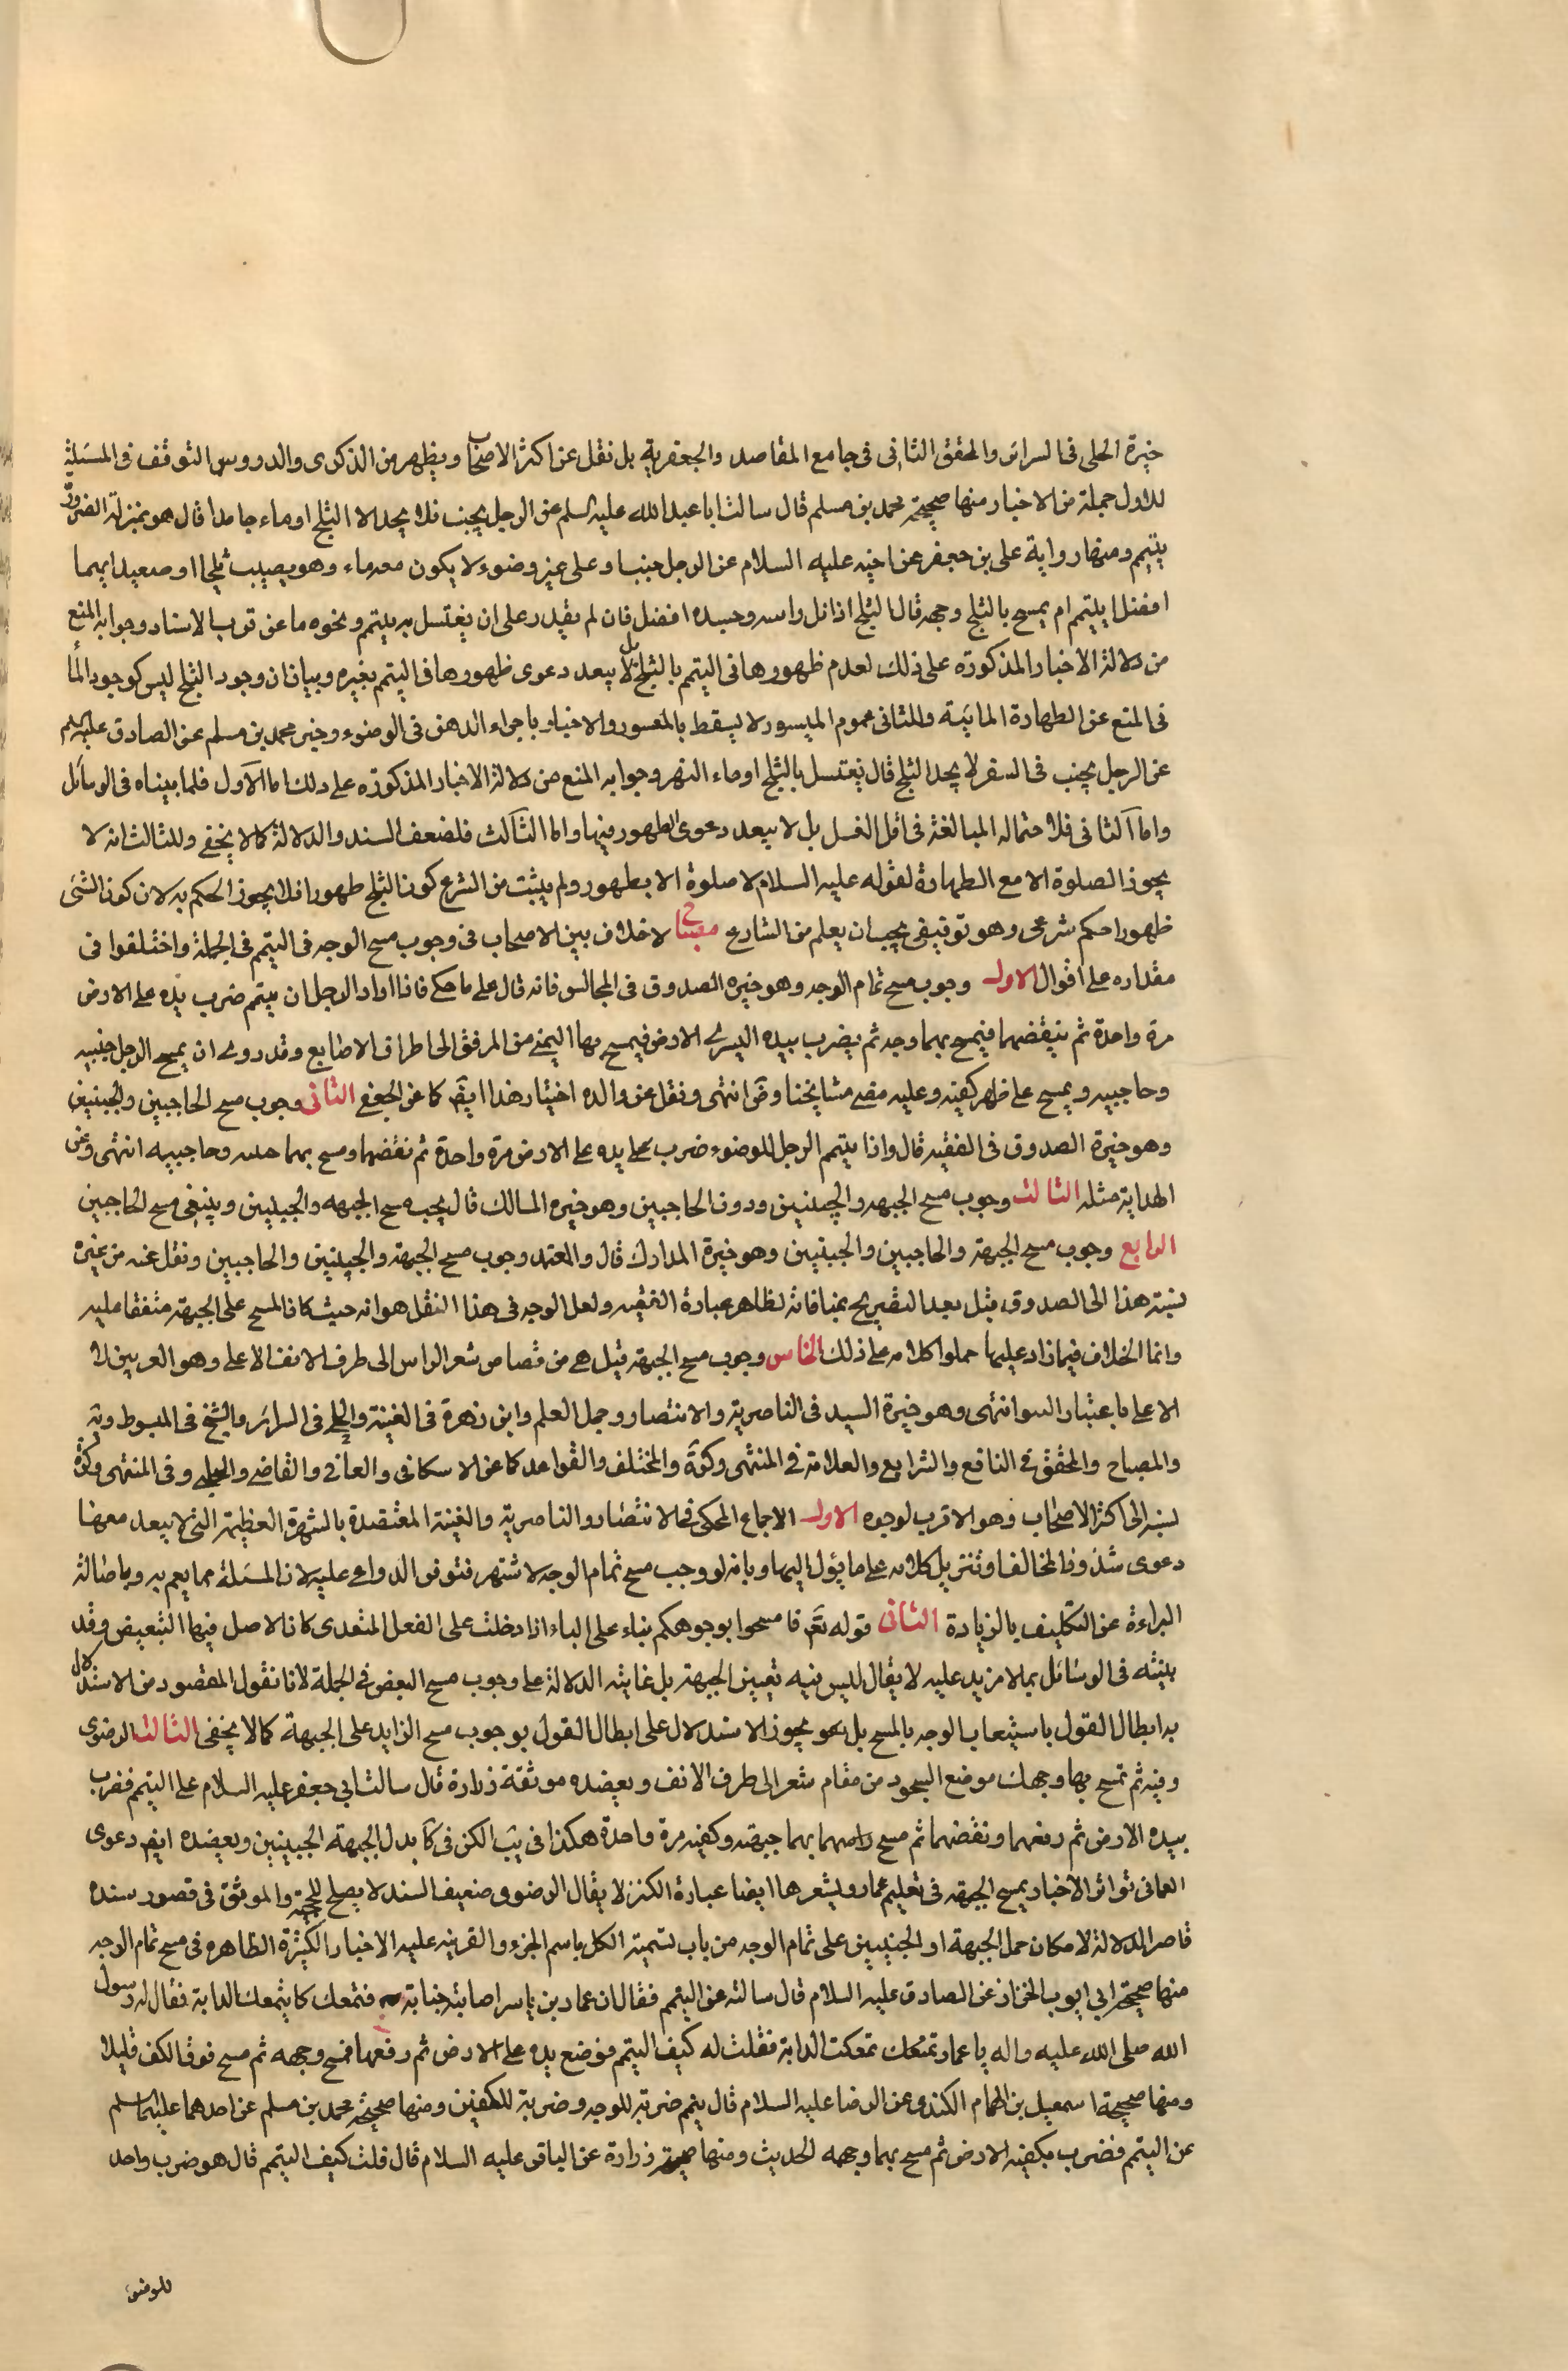 خيرة الحلى فى السرائر والمحقق الثانى فى جامع المقاصد والجعفرية بل نقل عن اكثر الاصحاب ويظهر من الذكرى والدروس التوقف فى المسئلة
للاول جملة من الاخبار منها صحيحة محمد بن مسلم قال سالت ابا عبد الله عليه السلم عن الرجل يجنب فلا يجد الا الثلج او ماء جامدا قال هو بمنزلة الضرورة
يتيمم ومنها رواية على بن جعفر عن اخيه عليه السلام عن الرجل جنبا وعلى غير وضوء لا يكون معه ماء وهو يصيب ثلجا او صعيدا ايهما
افضل ايتيمم ام يمسح بالثلج وجهه قال الثلج اذا بل راسه وجسده افضل فان لم يقدر على ان يغتسل به يتيمم ونحوه ما عن قرب الاسناد وجوابه المنع
من دلالة الاخبار المذكورة على ذلك لعدم ظهورها فى التيمم بالثلج بل لا يبعد دعوى ظهورها فى التيمم بغيره وبيان ان وجود الثلج ليس كوجود الماء
فى المنع عن الطهارة المائية وللثانى عموم الميسور لا يسقط بالمعسور والاخبار باجراء الدهن فى الوضوء وخبر محمد بن مسلم عن الصادق عليه السلم
عن الرجل يجنب فى السفر لا يجد الا الثلج قال يغتسل بالثلج او ماء النهر وجوابه المنع من دلالة الاخبار المذكورة على ذلك اما الاول فلما بيناه فى الوسائل
واما الثانى فلاحتماله المبالغة فى اقل الغسل بل لا يبعد دعوى الظهور فيها واما الثالث فلضعف السند والدلالة كما لا يخفى وللثالث انه لا
يجوز الصلوة الا مع الطهارة لقوله عليه السلام لا صلوة الا بطهور ولم يثبت من الشرع كون الثلج طهورا فلا يجوز الحكم به لان كون الشئ
طهورا حكم شرعى وهو توقيفى يجب ان يعلم من الشارع مفتاح لا خلاف بين الاصحاب فى وجوب مسح الوجه فى التيمم فى الجملة واختلفوا فى
مقداره على اقوال الاول وجوب مسح تمام الوجه وهو خيره الصدوق فى المجالس فانه قال على ما حكى فاذا اراد الرجل ان يتيمم ضرب يده على الارض
مرة واحدة ثم ينفضهما فيمسح بهما وجهه ثم يضرب بيده اليسرى الارض فيمسح بها اليمنى من المرفق الى اطراف الاصابع وقد روى ان يمسح الرجل جبينيه
وحاجبيه ويمسح على ظهر كفيه وعليه مضى مشايخنا انتهى ونقل عن والده اختيار هذا ايضا كما عن الجعفى الثانى وجوب مسح الحاجبين والجبينين
وهو خيرة الصدوق فى الفقيه قال واذا تيمم الرجل للوضوء ضرب يديه على الارض مرة واحدة ثم نفضهما ومسح بهما جبينيه وحاجبيه انتهى وعن
الهداية مثله الثالث وجوب مسح الجبهة والجبينين ودون الحاجبين وهو خيره المسالك قال يجب مسح الجبهه والجبينين وينبغى مسح الحاجبين
الرابع وجوب مسح الجبهة والحاجبين والجبينين وهو خيرة المدارك قال والمعتمد وجوب مسح الجبهة والجبينين والحاجبين ونقل عنه من غيره
نسبة هذا الى الصدوق قيل بعد التصريح بمنافاته لظاهر عبارة الفقيه ولعل الوجه فى هذا النقل هو انه حيث كان المسح على الجبهة متفقا عليه
وانما الخلاف فيما زاد عليها حملوا كلامه على ذلك الخامس وجوب مسح الجبهة قيل هى من قصاص شعر الراس الى طرف الانف الاعلى وهو العرنين لا
الاعلى باعتبار السو انتهى وهو خيرة السيد فى الناصرية والانتصار وجمل العلم وابن زهرة فى الغنية والحلى فى السرائر والشيخ فى المبسوط ويه
والمصباح والمحقق فى النافع والشرايع والعلامة فى المنتهى وكرة والمختلف والقواعد كما عن الاسكافى والعمانى والقاضى والحلبى وفى المنتهى وكرة
نسبه الى اكثر الاصحاب وهو الاقرب لوجوه الاول الاجماع المحكى فى الانتصار والناصرية والغنية المعتضدة بالشهرة العظيمة التى لا يبعد معها
دعوى شذوذ المخالف او تنزيل كلامه على ما يؤل اليها وبانه لو وجب مسح تمام الوجه لاشتهر فتوفر الدواعى عليه لان المسئلة مما يعم به وباصالة
البراءة عن التكليف بالزيادة الثانى قوله تع فامسحوا بوجوهكم بناء على الباء اذا دخلت على الفعل المتعدى كان الاصل فيها التبعيض وقد
بينته فى الوسائل بما لا مزيد عليه لا يقال ليس فيه تعيين الجبهة بل غايته الدلالة على وجوب مسح البعض فى الجملة لانا نقول المقصود من الاستدلال
به ابطال القول باستيعاب الوجه بالمسح بل يجوز الاستدلال على ابطال القول بوجوب مسح الزايد على الجبهة كما لا يخفى الثالث الرضوى
وفيه ثم تمسح بها وجهك موضع السجود من مقام شعر الى طرف الانف ويعضده موثقة زرارة قال سالت ابى جعفر عليه السلام على التيمم فضرب
بيده الارض ثم رفعها ونفضهما ثم مسح بهما جبهته وكفيه مرة واحدة هكذا فى يب الكن فى كا بدل الجبهة الجبينين ويعضده ايضا دعوى
العمانى تواتر الاخبار بمسح الجبهة فى تعليم عمار ويشعرها ايضا عبارة الكنز لا يقال الرضوى ضعيف السند لا يصلح للحجة والموثق فى قصور سنده
قاصر الدلالة لامكان حمل الجبهة او الجبينين على تمام الوجه من باب تسمية الكل باسم الجزء والقرينه عليه الاخبار الكثيرة الظاهره فى مسح تمام الوجه
منها صحيحة ابى ايوب الخزاز عن الصادق عليه السلام قال سالته عن التيمم فقال ان عمار بن ياسر اصابته جنابة فتمعك كما يتمعك الدابة فقال له رسول
الله صلى الله عليه واله يا عمار تمعكت تمعكت الدابة فقلت له كيف التيمم فوضع يده على الارض ثم رفعها فمسح وجهه ثم مسح فوق الكف قليلا
ومنها صحيحة اسمعيل بن الهمام الكندى عن الرضا عليه السلام قال يتمم ضربة للوجه وضربة للكفين ومنها صحيحة محمد بن مسلم عن احدهما عليهما السلم
عن التيمم فضرب بكفيه الارض ثم مسح بهما وجهه الحديث ومنها صحيحة زرارة عن الباقر عليه السلام قال قلت كيف التيمم قال هو ضرب واحد
للوضوء